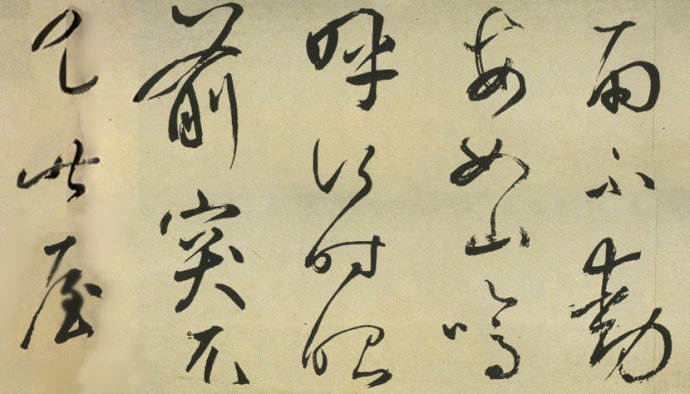 雨不動
安如山嗚
呼何時眼
前突兀
見此屋